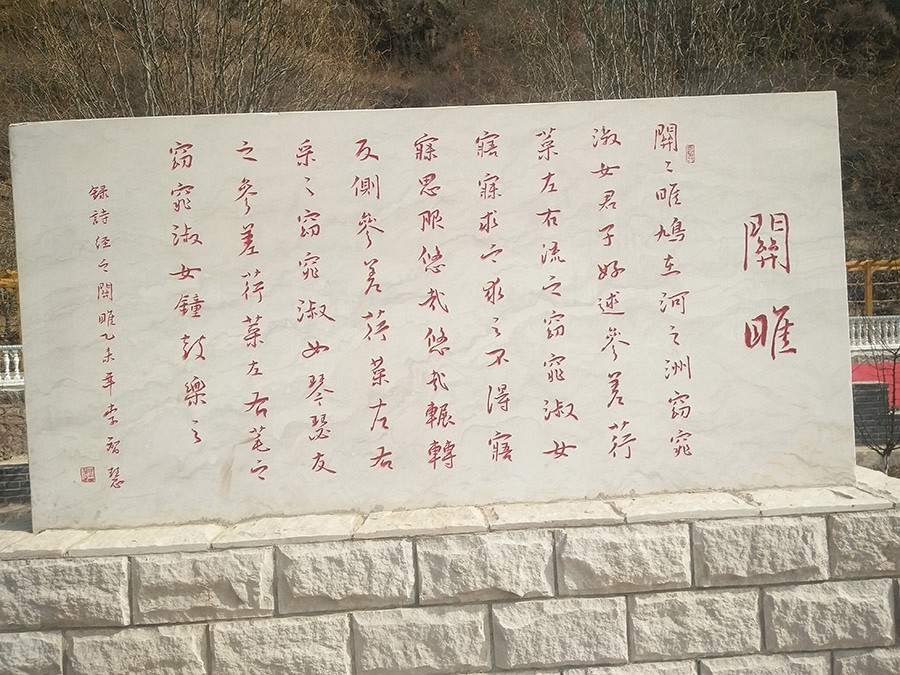 關雎
關〻雎鳩在河之洲窈窕
淑女君子好逑參差荇
菜左右流之窈窕淑女
寤寐求之求之不得寤
寐思服悠哉悠哉輾轉
反側參差荇菜左右
采〻窈窕淑女琴瑟友
之參差荇菜左右芼之
窈窕淑女鐘鼓樂之
錄詩經之關雎乙未年李智慧